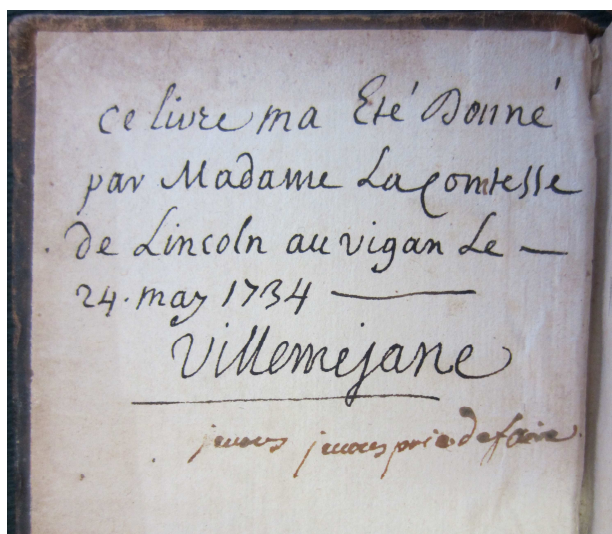 ce livre ma Eté Donné
par Madame La Comtesse
de Lincoln au vigan Le —
24. may 1734 —
Villemejane
jeuous jeuous prie de faire